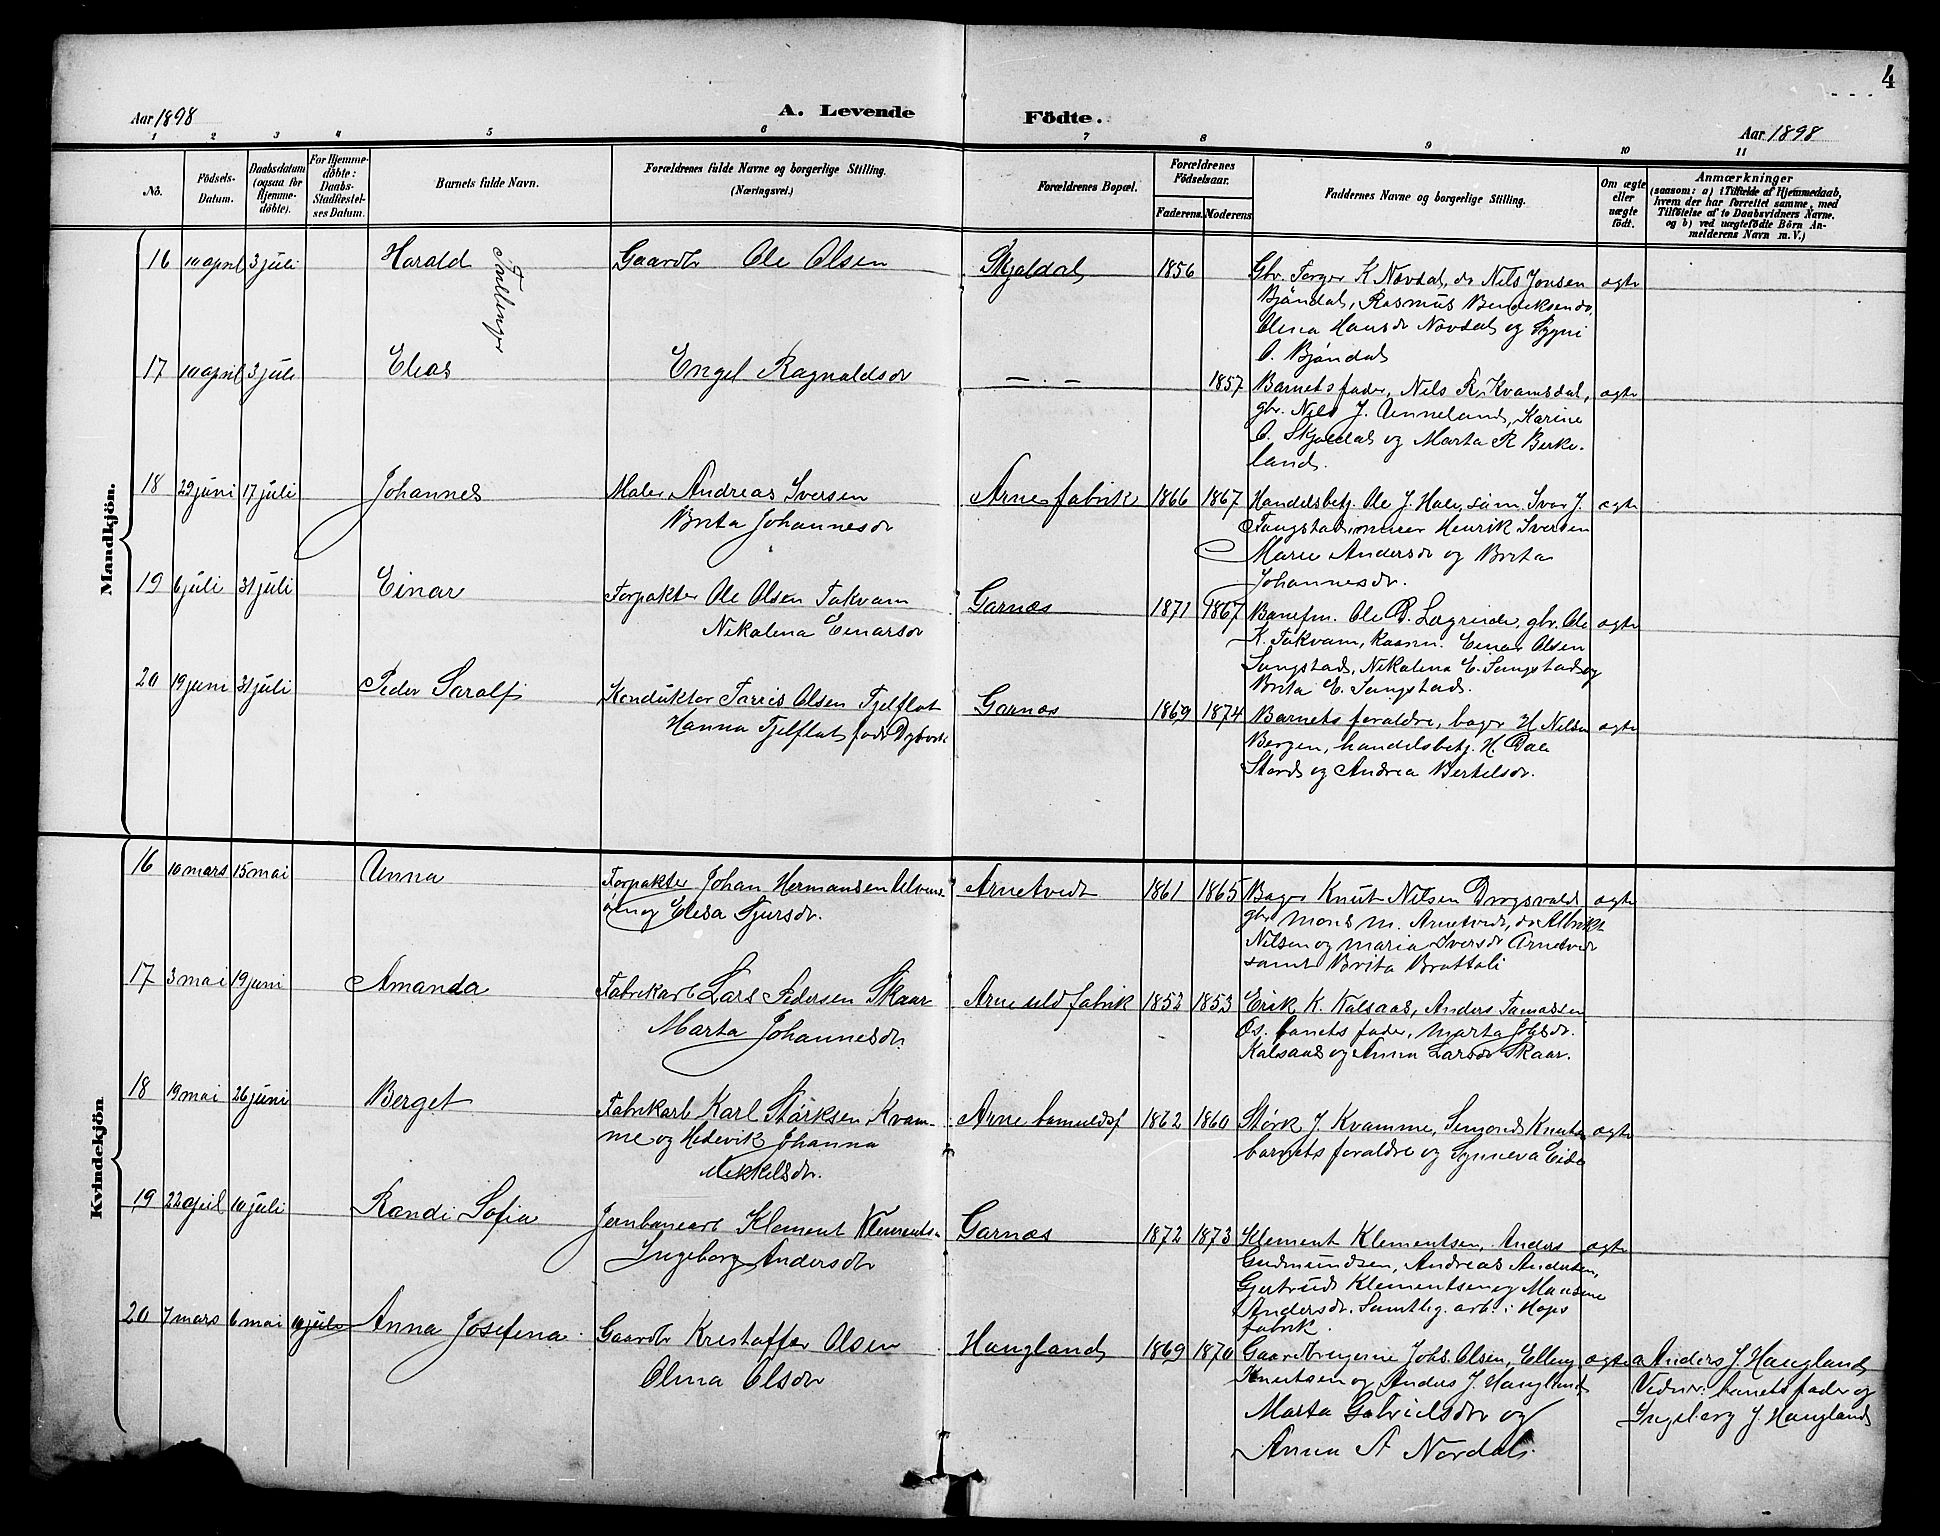 4
Aar 1898
A. Levende Födte.
Aar 1898
1 2 3 4 5 6 7 8 9 10 11
No.
Födsels-
Datum.
Daabsdatum
(ogsaa for
Hjemme-
döbte).
For Hjemme-
döbte:
Daabs-
Stadfæstel-
ses Datum.
Barnets fulde Navn.
Forældrenes fulde Navne og borgerlige Stilling.
(Næringsvei.)
Forældrenes Bopæl.
Forældrenes
Födselsaar.
Faderens. Moderens.
Faddernes Navne og borgerlige Stilling.
Om ægte
eller
uægte
födt.
Anmærkninger
(saasom: a) i Tilfælde af Hjemmedaab,
hvem der har forrettet samme, med
Tilföielse af to Daabsvidners Navne.
og b) ved uægtefödte Börn An-
melderens Navn m. V.)
Mandkjön.
16 10 april 3 juli Harald Tvillinger Gaardbr Ole Olsen Skjoldal 1856
Gbr. Torger K Navdal, do Nils Jonsen
Bjöndal, Rasmus Bendiksen do,
Olina Hansdr Navdal og
O. Bjöndal
ægte
17 10 april 3 juli Elias Engel Ragnaldsdr — . — 1857
Barnets fader, Nils R. Kvamsdal,
gbr. Nils J. Unneland, Karine
O. Skjoldal og Marta R Berke-
land.
ægte
18 29 juni 17 juli Johannes Maler Andreas Iversen
Brita Johannesdr
Arne fabrik 1866 1867
Handelsbetj. Ole J. Hole, Ivar J.
Tangstad, murer Henrik Iversen
Marie Andersdr og Brita
Johannesdr.
ægte
19 6 juli 31 juli Einar Forpakter Ole Olsen Takvam
Nikolina Einarsdr
Garnæs 1871 1867
Banefm. Ole B. Lægreide, gbr. Ole
K. Takvam, Einar Olsen
Songstad, Nikolina E. Songstad og
Brita E. Songstad.
ægte
20 19 juni 31 juli Peder Saralf Konduktør Olsen Fjelflot
Hanna Fjelflot född
Garnæs 1869 1874
Barnets forældre, bager H. Nilsen
Bergen, handelsbetj. H. Dale
Stord og Andrea Bertelsdr.
ægte
Kvindekjön
16 10 mars 15 mai Anna Forpakter Johan Hermansen
og Elisa Sjursdr.
Arnetvedt 1861 1865
Bager Knut Nilsen
gbr Mons M. Arnetvedt, do Albrikt
Nilsen og Maria Iversdr Arnetvedt
samt Brita Brattali
ægte
17 3 mai 19 juni Amanda Fabrikarb Lars Pedersen Skaar
Marta Johannesdr.
Arne uldfabrik 1852 1853
Erik K. Kalsaas, Anders Tomassen
Os, barnets fader, Marta Johsdr.
Kalsaas og Anna Larsdr Skaar.
18 19 mai 26 juni Berget Fabrikarb Karl Störksen Kvam-
me og Hedevik Johanna
Mikkelsdr.
Arne bomuldsf 1862 1860
Störk J. Kvamme, Simond Knutsen
barnets forældre og Synneva Eide
ægte
19 22 april 10 juli Randi Sofia Jernbanearb Klement Klements.
Ingeborg Andersdr
Garnæs 1872 1873
Klement Klementsen, Anders
Gudmundsen, Andreas Andersen,
Gjertrud Klementsen og
Andersdr. Samtlig arb. i Hops
fabrik.
ægte
20 7 mars 6 mai 10 juli Anna Josefina. Gaardbr Kristaffer Olsen
Olina Olsdr
Haugland 1869 1870
Gaardbrugerne Johs. Olsen, Elling
Knutsen og Anders J. Haugland
Marta Gabrielsdr og
Anna A Nordal.
ægte
a Anders J. Haugland
Vidner: barnets fader og
Ingeborg J. Haugland